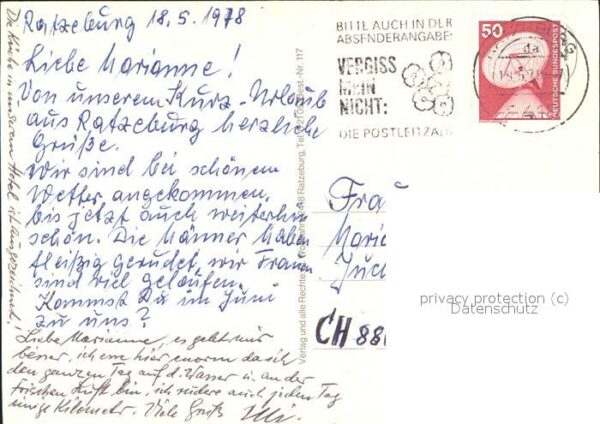 Ratzeburg 18.5.1978
Liebe Marianne!
Von unserem Kurz-Urlaub
aus Ratzeburg herzliche
Grüße.
Wir sind bei schönem
Wetter angekommen,
bis jetzt auch weiterhin
schön. Die Männer haben
fleißig gerudet, wir Frauen
sind viel gelaufen.
Kommst Du im Juni
zu uns?
Liebe Marianne, es geht mir
besser, ich bin hier enorm da ich
den ganzen Tag auf d. Wasser u. an der
frischen Luft bin, ich rudere auch jeden Tag
einige Kilometer. Viele Grüße
Die Küche in unserem Hotel ist ausgezeichnet!
Verlag und alle Rechte
Ratzeburg, Tel.
Best.-Nr. 117
BITTE AUCH IN DER
ABSENDERANGABE:
VERGISS
MEIN
NICHT:
DIE POSTLEITZAHL
50
DEUTSCHE BUNDESPOST
da
Frau
Maria
CH 88
privacy protection (c)
Datenschutz